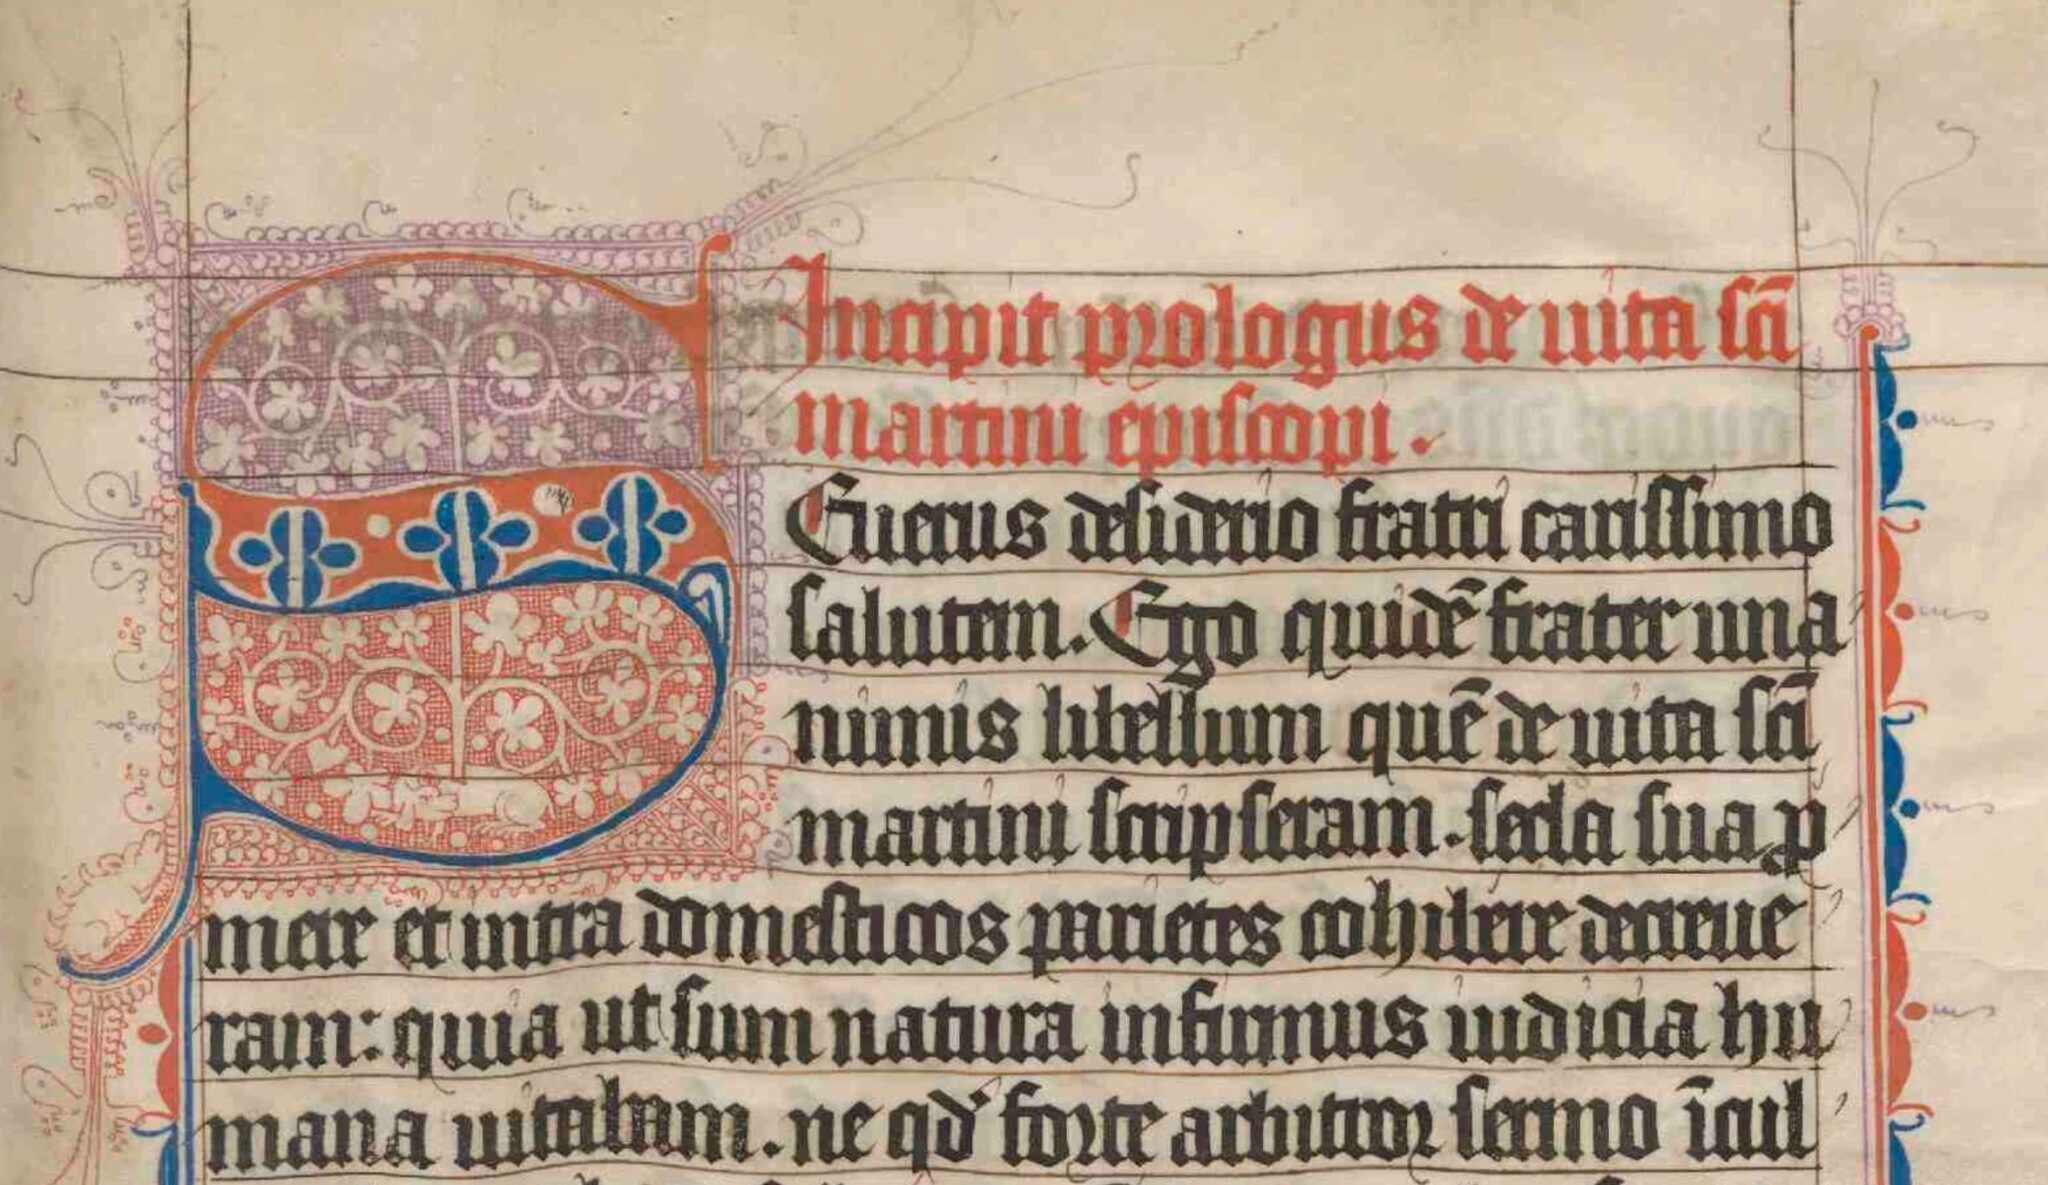 Incipit prologus de uita sci̅
martini episcopi.
SEuerus desiderio fratri carissimo
salutem. Ego quide̅ frater una
nimis libellum que̅ de uita sci̅
martini scripseram. sceda sua p̱
mere et intra domesticos parietes cohibere decreue
ram: quia ut sum natura infirmus iudicia hu
mana uitabam. ne qd' forte arbitror sermo i̅cul